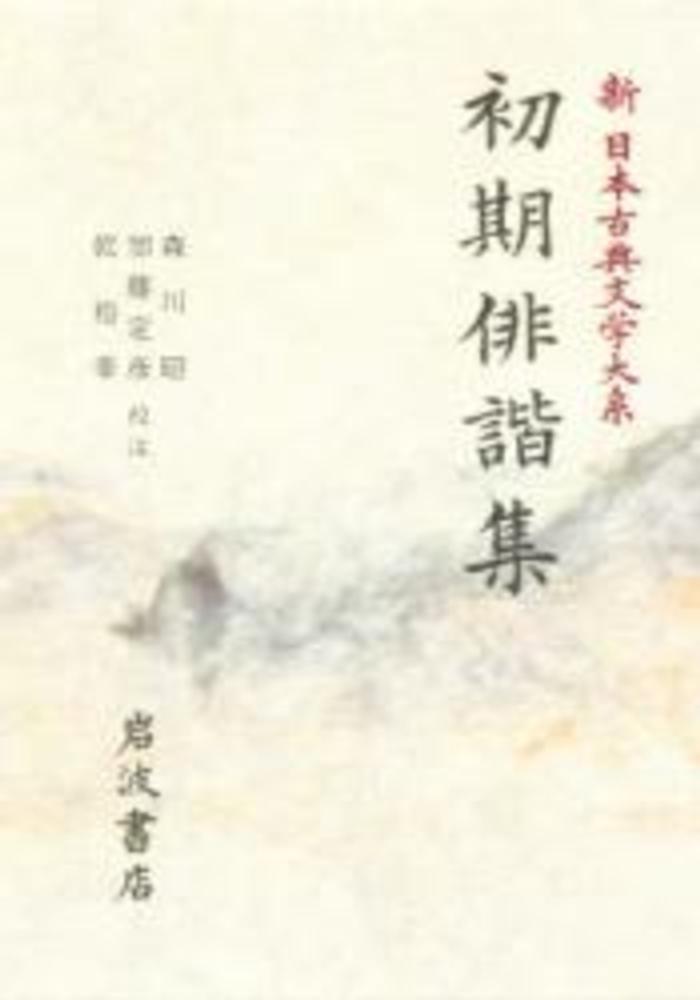 新 日本古典文学大系
初期俳諧集
森川 昭
加藤定彦 校注
乾 裕幸
岩波書店